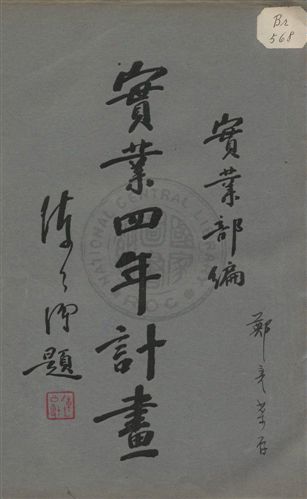 Br
568
實業部編
實業四年計畫
題
NATIONAL CENTRAL LIBRARY
R.O.C.
鄭